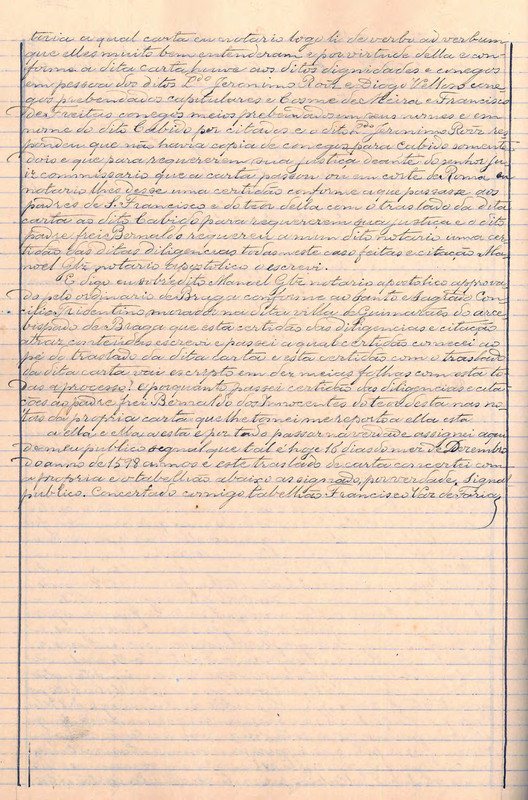 teria a qual carta eu notario logo li de verbo ad verbum
que elles muito bem entenderam e por virtude della e con-
forme a dita carta houve aos ditos dignidades e conegos
em pessoa dos ditos Ldo Jeronimo Roiz e Diogo Velloso cone-
gos prebendados capitulares e Cosme de Meira e Francisco
de Freitas conegos meios prebendados em seus nomes e em
nome do dito Cabido por citados e o dito Ldo Jeronimo Roiz res-
pondeu que não havia copia de conegos para Cabido somente
dois e que para requererem sua justiça deante do senhor ju-
iz commissario que a carta passou ou em corte de Roma eu
notario lhes desse uma certidão conforme a que passasse aos
padres de S. Francisco e do teor della com o traslado da dita
carta ao dito Cabido para requererem sua justiça e o dito
padre frei Bernaldo requereu a mim dito notario uma cer-
tidão das ditas diligencias todas neste caso feitas e citação Ma-
noel Glz notario apostolico o escrevi.
E digo eu sobredito Manoel Glz notario apostolico approva-
do pelo ordinario de Braga conforme ao santo e sagrado Con-
cilio Tridentino morador na dita villa de Guimarães do arce-
bispado de Braga que esta certidão das diligencias e citação
atraz conteudas escrevi e passei a qual certidão comecei ao
pé do traslado da dita carta e esta certidão com o traslado
da dita carta vai escripto em dez meias folhas com esta to-
das a processo? e porquanto passei certidão das diligencias e cita-
ções ao padre frei Bernaldo dos Innocentes do teor desta nas no-
tas da propria carta que lhe tornei me reporto a ella esta
a ella e ella a esta e por tudo passar na verdade assignei aqui
de meu publico segnal que tal é hoje 16 dias do mez de Dezembro
do anno de 1578 annos e este traslado de carta concertei com
a propria e o tabellião abaixo assignado, por verdade. Signal
publico. Concertado comigo tabellião Francisco Vaz de Faria